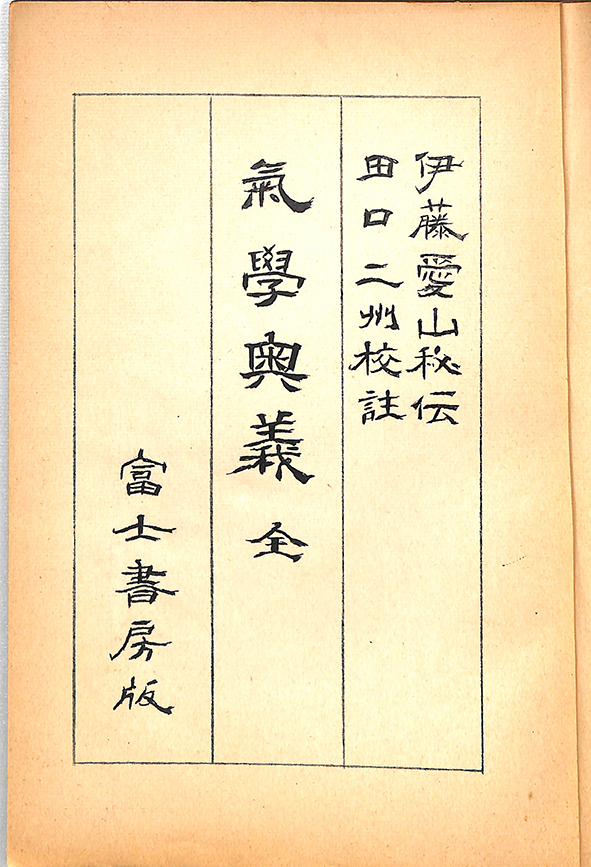 伊藤愛山秘伝
田口二州校註
氣學奥義 全
富士書房版